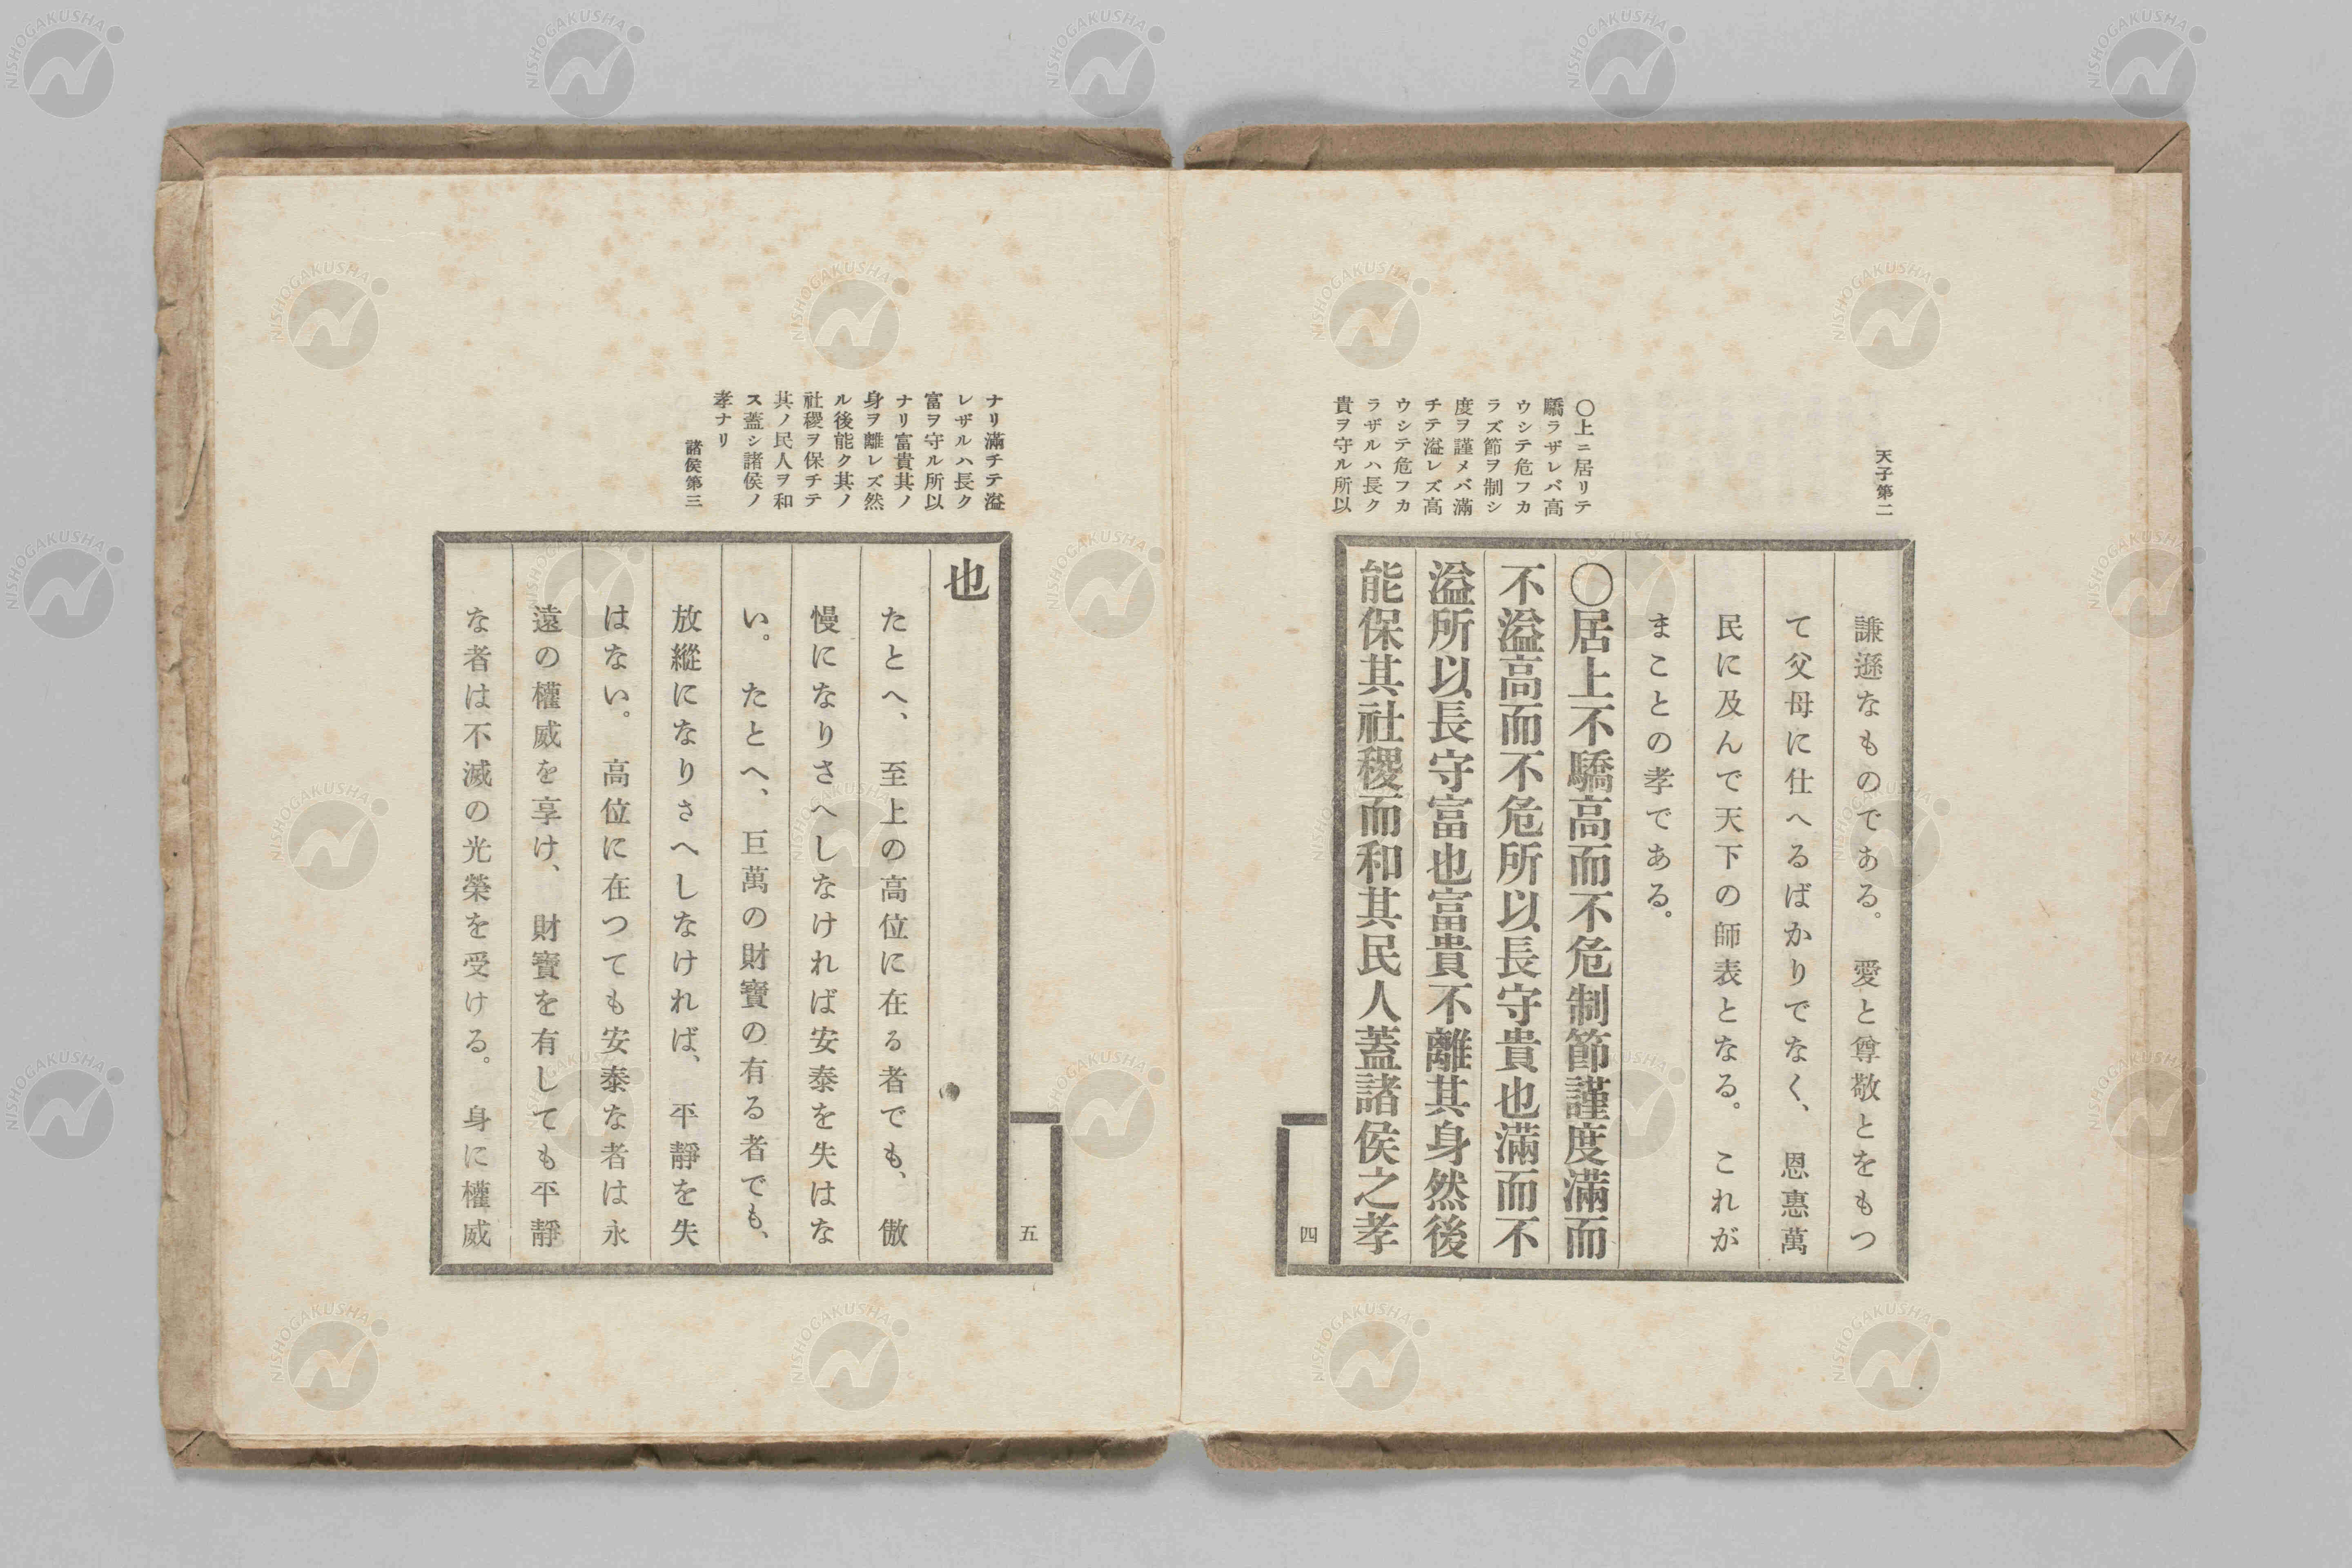 天子第二
謙遜なものである。愛と尊敬とをもつ
て父母に仕へるばかりでなく、恩惠萬
民に及んで天下の師表となる。これが
まことの孝である。
〇上ニ居リテ
驕ラザレバ高
ウシテ危フカ
ラズ節ヲ制シ
度ヲ謹メバ滿
チテ溢レズ高
ウシテ危フカ
ラザルハ長ク
貴ヲ守ル所以
〇居上不驕高而不危制節謹度滿而
不溢高而不危所以長守貴也滿而不
溢所以長守富也富貴不離其身然後
能保其社稷而和其民人蓋諸侯之孝
四
ナリ滿チテ溢
レザルハ長ク
富ヲ守ル所以
ナリ富貴其ノ
身ヲ離レズ然
ル後能ク其ノ
社稷ヲ保チテ
其ノ民人ヲ和
ス蓋シ諸侯ノ
孝ナリ
諸侯第三
五
也
たとへ、至上の高位に在る者でも、傲
慢になりさへしなければ安泰を失はな
い。たとへ、巨萬の財寶の有る者でも、
放縱になりさへしなければ、平靜を失
はない。高位に在つても安泰な者は永
遠の權威を享け、財寶を有しても平靜
な者は不滅の光榮を受ける。身に權威
NISHOGAKUSHA